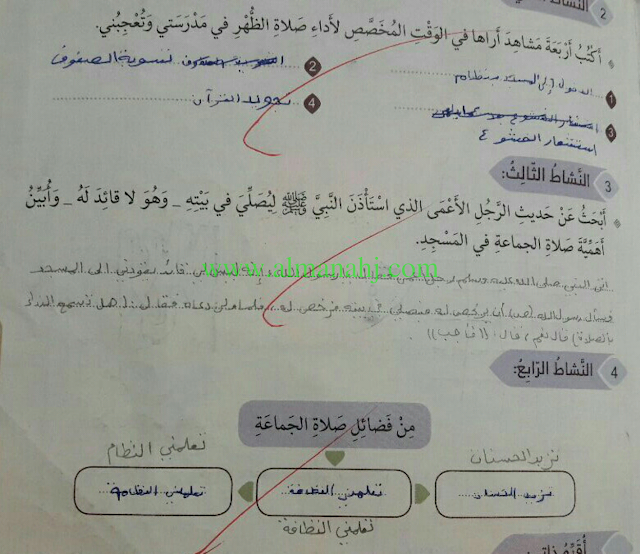 2 النشاط الثاني:
أَكْتُبُ أَرْبَعَةَ مَشَاهِدَ أَرَاهَا فِي الوَقْتِ المُخَصَّصِ لأَدَاءِ صَلَاةِ الظُّهْرِ فِي مَدْرَسَتِي وَتُعْجِبُنِي.
1 الدخول إلى المسجد بنظام
2 تسوية الصفوف
3 استشعار الخشوع
4 تجويد القرآن
3 النَّشَاطُ الثَّالِثُ:
أَبْحَثُ عَنْ حَدِيثِ الرَّجُلِ الأَعْمَى الذي اسْتَأْذَنَ النَّبِيَّ ﷺ لِيُصَلِّيَ فِي بَيْتِهِ _ وَهُوَ لا قائِدَ لَهُ _ وَأُبَيِّنُ
أَهَمِّيَّةَ صَلَاةِ الجَماعَةِ فِي المَسْجِدِ.
www.almanahj.com
اتى النبي صلى الله عليه وسلم رجل اعمى فقال يا رسول الله إنه ليس لي قائد يقودني الى المسجد
فسأل رسول الله أن يرخص له فيصلي في بيته فرخص له، فلما ولى دعاه فقال له: هل تسمع النداء
بالصلاة) قال نعم، قال: ((فأجب))
4 النَّشَاطُ الرَّابِعُ:
مِنْ فَضَائِلِ صَلَاةِ الجَمَاعَةِ
تزيد الحسنات
تعلمني النظام
تزيد الحسنات
تعلمني النظافة
تعلمني النظام
تعلمني النظافة
أُقَيِّمُ ذاتي: